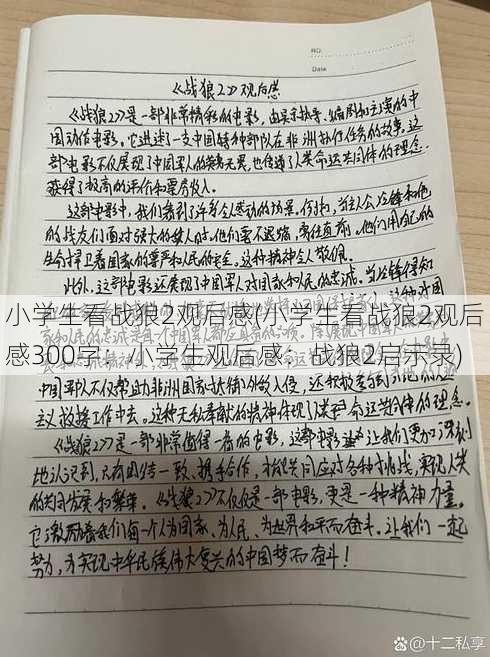 NO.
Date
《战狼2》观后感
《战狼2》是一部非常精彩的电影,由吴京执导、编剧和主演的中
国动作电影。它讲述了一支中国特种部队在非洲执行任务的故事。这
部电影不仅展现了中国军人的英勇无畏,也传递了人类命运共同体的理念,
获得了极高的评价和票房收入。
这部电影中,我们看到了许多令人感动的场景。例如,当主人公冷锋和他
的战友们面对强大的敌人时,他们毫不退缩,勇往直前。他们用自己的
生命捍卫着国家的尊严和人民的安全。这种精神令人敬佩。
此外,这部电影还展现了中国军人对国家和人民的忠诚。当冷锋得知
小学生看战狼2观后感(小学生看战狼2观后
感300字:小学生观后感:战狼2启示录)
中国军队不仅帮助非洲国家抵御外敌入侵,还积极参与到
主义救援工作中去。这种无私奉献的精神体现了人类命运共同体的理念。
《战狼2》是一部非常值得一看的电影,这部电影让我们更加深刻
地认识到,只有团结一致、携手合作,才能共同应对各种挑战,实现人类
的共同发展和繁荣。《战狼2》不仅仅是一部电影,更是一种精神力量。
它激励着我们每一个人为国家、为人民、为世界和平而奋斗。让我们一起
努力,为实现中华民族伟大复兴的中国梦而奋斗!
@十二私享